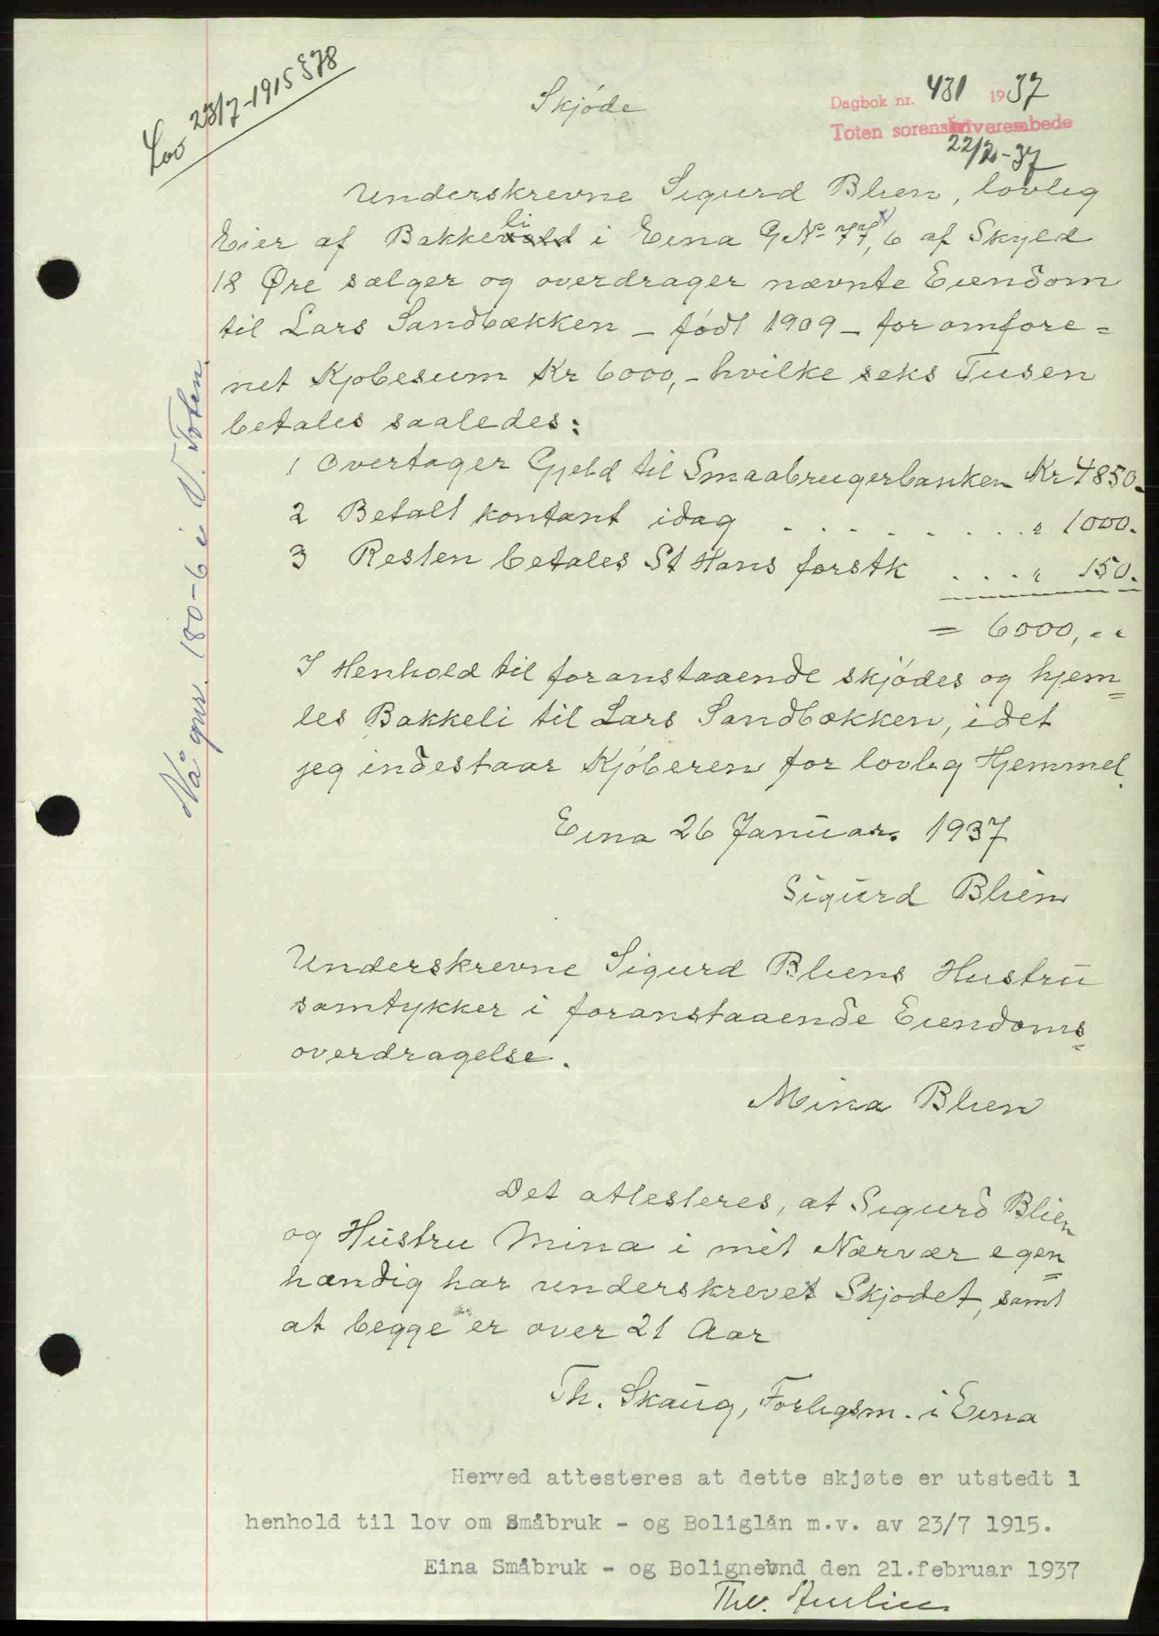 Lov 23/7-1915 § 78
Skjøde
Dagbok nr. 431 1937
Toten sorenskriverembede
22/2-37
Underskrevne Sigurd Blien, lovlig
Eier af Bakkeli i Eina GNo 77, 6 af Skyld
18 Øre sælger og overdrager nævnte Eiendom
til Lars Sandbækken – født 1909 – for omfore=
net Kjøbesum Kr 6000,- hvilke seks Tusen
betales saaledes:
1 Overtager Gjeld til Smaabrugerbanken Kr 4850.
2 Betalt kontant idag . . . . . . . . " 1000.
3 Resten betales St Hans førstk . . . " 150.
= 6000, " "
I Henhold til foranstaaende skjødes og hjem=
les Bakkeli til Lars Sandbækken, idet
jeg indestaar Kjøberen for lovlig Hjemmel.
Eina 26 Januar. 1937
Sigurd Blien
Underskrevne Sigurd Bliens Hustru
samtykker i foranstaaende Eiendoms=
overdragelse.
Mina Blien
Det attesteres, at Sigurd Blien
og Hustru Mina i mit Nærvær egen=
hændig har underskrevet Skjødet, samt
at begge er over 21 Aar
Th. Skaug, Forligsm. i Eina
Herved attesteres at dette skjøte er utstedt i
henhold til lov om Småbruk - og Boliglån m.v. av 23/7 1915.
Eina Småbruk - og Bolignevnd den 21.februar 1937
Nå gnr. 180-6 i V. Toten.